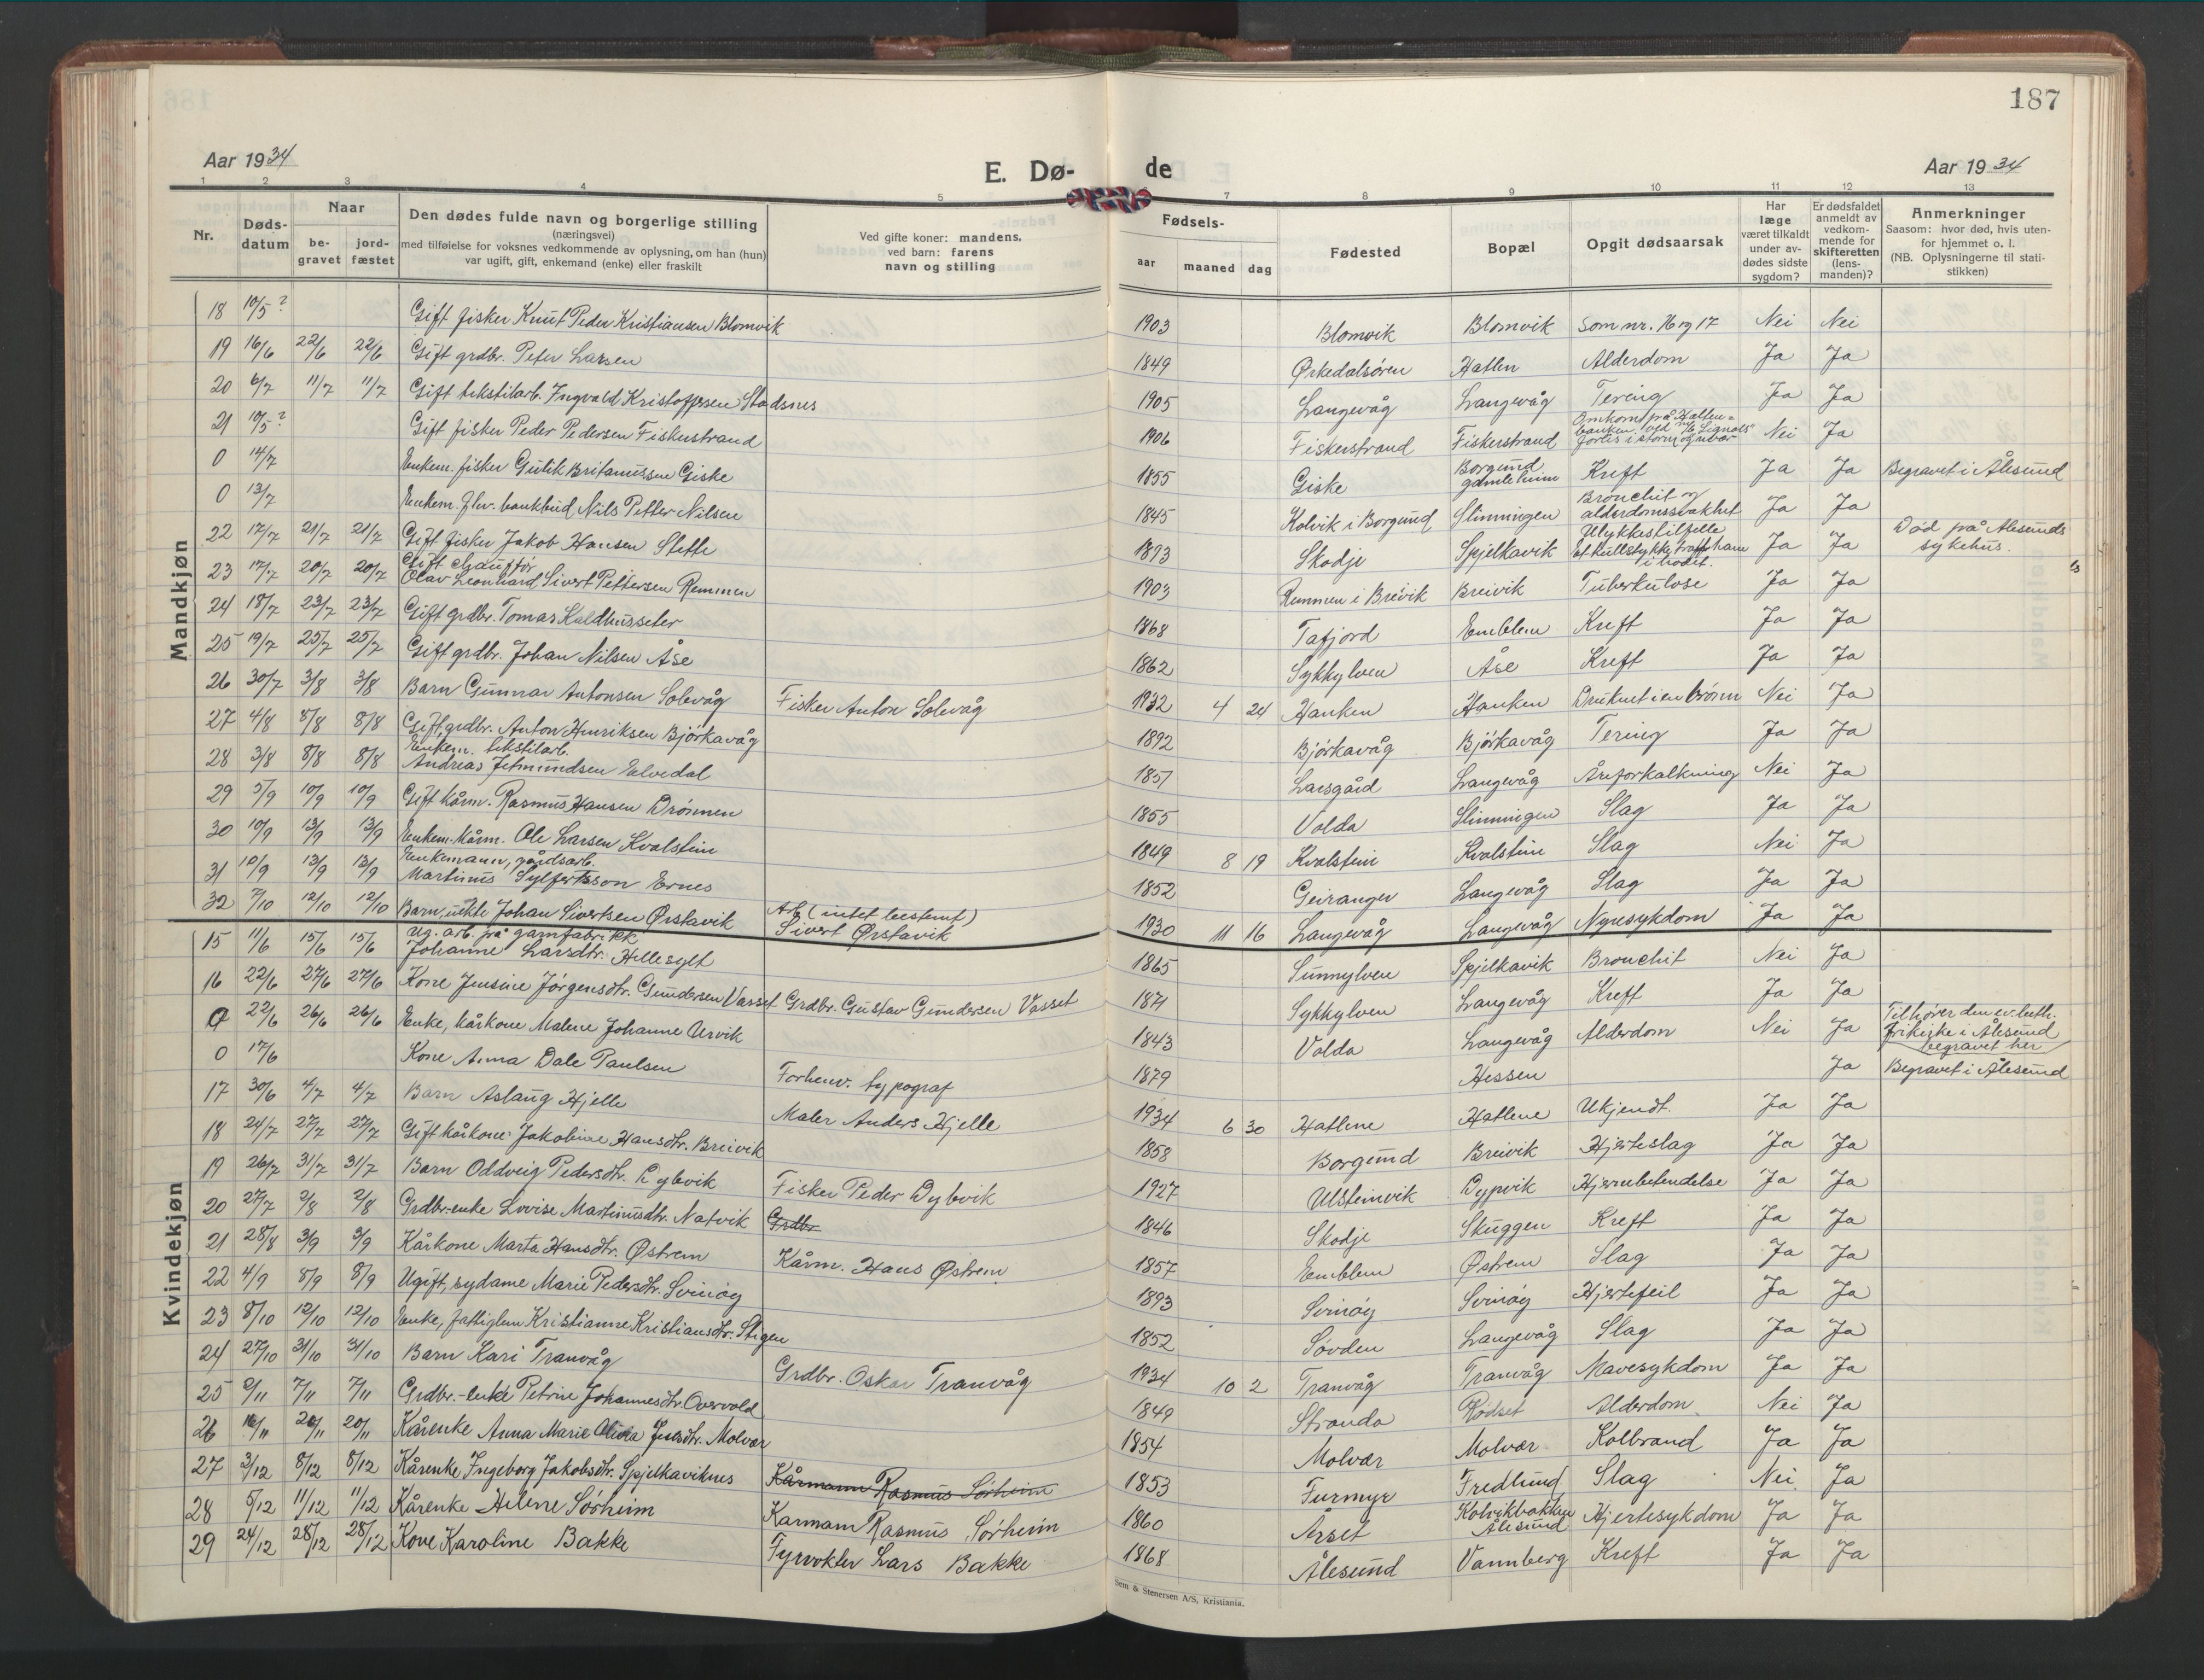 187
Aar 1934
E. Døde
Aar 1934
1 2 3 4 5 7 8 9 10 11 12 13
Nr.
Dødsdatum
Naar
begravet
jordfæstet
Den dødes fulde navn og borgerlige stilling
(næringsvei)
med tilføielse for voksnes vedkommende av oplysning, om han (hun)
var ugift, gift, enkemand (enke) eller fraskilt
Ved gifte koner: mandens.
ved barn: farens
navn og stilling
Fødsels-
aar maaned dag
Fødested
Bopæl
Opgit dødsaarsak
Har læge været tilkaldt under avdødes sidste sygdom?
Er dødsfaldet anmeldt av vedkommende for skifteretten (lensmanden)?
Anmerkninger
Saasom: hvor død, hvis utenfor hjemmet o. l.
(NB. Oplysningerne til statistikken)
Mandkjøn
18 10/5 ? Gift fisker Knut Peder Kristiansen Blomvik 1903 Blomvik Blomvik som nr. 16 og 17 Nei Nei
19 16/6 22/6 22/6 Gift grdbr. Peter Larsen 1849 Ørkedalsören Hatlen Alderdom Ja Ja
20 6/7 11/7 11/7 Gift tekstilarb. Ingvald Kristoffersen Stadsnes 1905 Langevåg Langevåg Tering Ja Ja
21 10/5 ? Gift fisker Peder Pedersen Fiskerstrand 1906 Fiskerstrand Fiskerstrand Omkom på Haltenbanken ved m/k Signals forlis i storm Nei Ja
0 14/7 Enkem. fisker Gutik Britanussen Giske 1855 Giske Borgund gamleheim Kreft Ja Ja Begravet i Ålesund
0 13/7 Enkem. fhv. bankbud Nils Petter Nilsen 1845 Kolvik i Borgund Slinningen Bronchit og alderdomssvakhet Ja Ja
22 17/7 21/7 21/7 Gift fisker Jakob Hansen Stette 1893 Skodje Spjelkavik Ulykkestilfelle et kullstykke traff ham i hodet. Ja Ja Død på Ålesunds sykehus.
23 17/7 20/7 20/7 Gift chauffør Olav Leonhard Sivert Pettersen Remmen 1903 Remmen i Breivik Breivik Tuberkulose Ja Ja
24 18/7 23/7 23/7 Gift grdbr. Tomas Kaldhusseter 1868 Tafjord Emblem Kreft Ja Ja
25 19/7 25/7 25/7 Gift grdbr. Johan Nilsen Åse 1862 Sykkylven Åse Kreft Ja Ja
26 30/7 3/8 3/8 Barn Gunnar Antonsen Solevåg Fisker Anton Solevåg 1932 4 24 Hanken Hanken Druknet i en brönn Nei Ja
27 4/8 8/8 8/8 Gift, grdbr. Anton Henriksen Björkavåg 1892 Björkavåg Björkavåg Tering Ja Ja
28 3/8 8/8 8/8 Enkem. tekstilarb. Andreas Jetmundsen Elvedal 1857 Larsgård Langevåg Åreforkalkning Nei Ja
29 5/9 10/9 10/9 Gift kårm. Rasmus Hansen Drönnen 1855 Volda Slinningen Slag Ja Ja
30 10/9 13/9 13/9 Enkem. kårm. Ole Larsen Kvalstein 1849 8 19 Kvalstein Kvalstein Slag Nei Ja
31 10/9 13/9 13/9 Enkemann, gårdsarb. Martinus Sylfertsson Ernes 1852 Geiranger Langevåg Slag Ja Ja
32 7/10 12/10 12/10 Barn, uekte Johan Sivertsen Ørstavik Arb (intet bestemt) Sivert Ørstavik 1930 11 16 Langevåg Langevåg Nyresykdom Ja Ja
Kvindekjøn
15 11/6 15/6 15/6 Ug. arb. på garnfabrikk Johanne Larsdtr. Hellesylt 1865 Sunnylven Spjelkavik Bronchit Nei Ja
16 22/6 27/6 27/6 Kone Jensine Jörgensdtr. Gundersen Vasset Grdbr. Gustav Gundersen Vasset 1871 Sykkylven Langevåg Kreft Ja Ja
0 22/6 26/6 26/6 Enke, kårkone Malene Johanne Urvik 1843 Volda Langevåg Alderdom Nei Ja Tilhører den ev. luth. frikirke i Ålesund begravet her
0 17/6 Kone Anna Dale Paulsen Forhenv. typograf 1879 Hessen Ja Begravet i Ålesund
17 30/6 4/7 4/7 Barn Aslaug Hjelle Maler Anders Hjelle 1934 6 30 Hatlene Hatlene Ukjendt. Ja Ja
18 24/7 27/7 27/7 Gift kårkone Jakobine Hansdtr. Breivik 1858 Borgund Breivik Hjerteslag Ja Ja
19 26/7 31/7 31/7 Barn Oddveig Pedersdtr. Dybvik Fisker Peder Dybvik 1927 Ulsteinvik Dypvik Hjernebetendelse Ja Ja
20 27/7 2/8 2/8 Grdbr.-enke Lovise Martinusdtr. Natvik Grdbr. 1846 Skodje Skuggen Kreft Ja Ja
21 28/8 3/9 3/9 Kårkone Marta Hansdtr. Østrem Kårm. Hans Østrem 1857 Emblem Østrem Slag Ja Ja
22 4/9 8/9 8/9 Ugift, sydame Marie Pedersdtr. Svinöy 1893 Svinöy Svinöy Hjertefeil Ja Ja
23 8/10 12/10 12/10 Enke, fattiglem Kristianne Kristiansdtr. Stigen 1852 Søvden Langevåg Slag Ja Ja
24 27/10 31/10 31/10 Barn Kari Tranvåg Grdbr. Oskar Tranvåg 1934 10 2 Tranvåg Tranvåg Mavesykdom Ja Ja
25 2/11 7/11 7/11 Grdbr.-enke Petrine Johannesdtr. Overvold 1849 Stranda Rødset Alderdom Nei Ja
26 16/11 20/11 20/11 Kårenke Anna Marie Jensdtr. Molvær 1854 Molvær Molvær Kolbrand Ja Ja
27 3/12 8/12 8/12 Kårenke Ingeborg Jakobsdtr. Spjelkaviknes Kårmann Rasmus Sörheim 1853 Furmyr Fredlund Slag Nei Ja
28 5/12 11/12 11/12 Kårenke Helene Sörheim Karmann Rasmus Sörheim 1860 Årset Kolvikbakken Ålesund Hjertesykdom Ja Ja
29 24/12 28/12 28/12 Kone Karoline Bakke Fyrvokter Lars Bakke 1868 Ålesund Vannberg Kreft Ja Ja
Sem & Stenersen A/S, Kristiania.